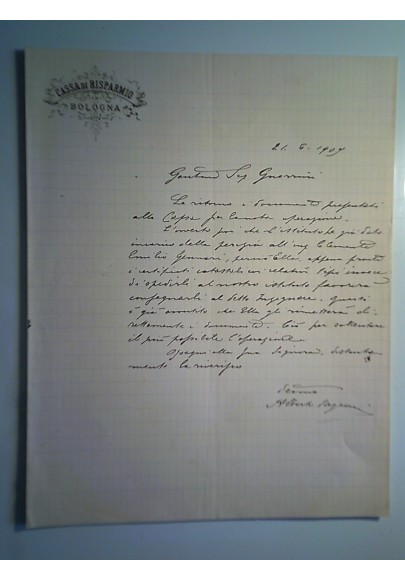 CASSA DI RISPARMIO
BOLOGNA
21. 6. 1909
Sig Guerrini
Le ritorno i documenti presentati
alla Cassa per la nota operazione.
L'avverto poi che l'Istituto ha già dato
incarico della perizia all'ing Clemente
Emilio Gennari, perciò Ella, appena pronti
i certificati catastali ed relativi invece
di spedirli al nostro istituto favorirà
consegnarli al detto Ingegnere. questi
è già avvertito che Ella gli rimetterà di-
rettamente i documenti. Ciò per sollecitare
il più possibile l'operazione
Ossequi alla Sua Signora, distinta-
mente la riverisco